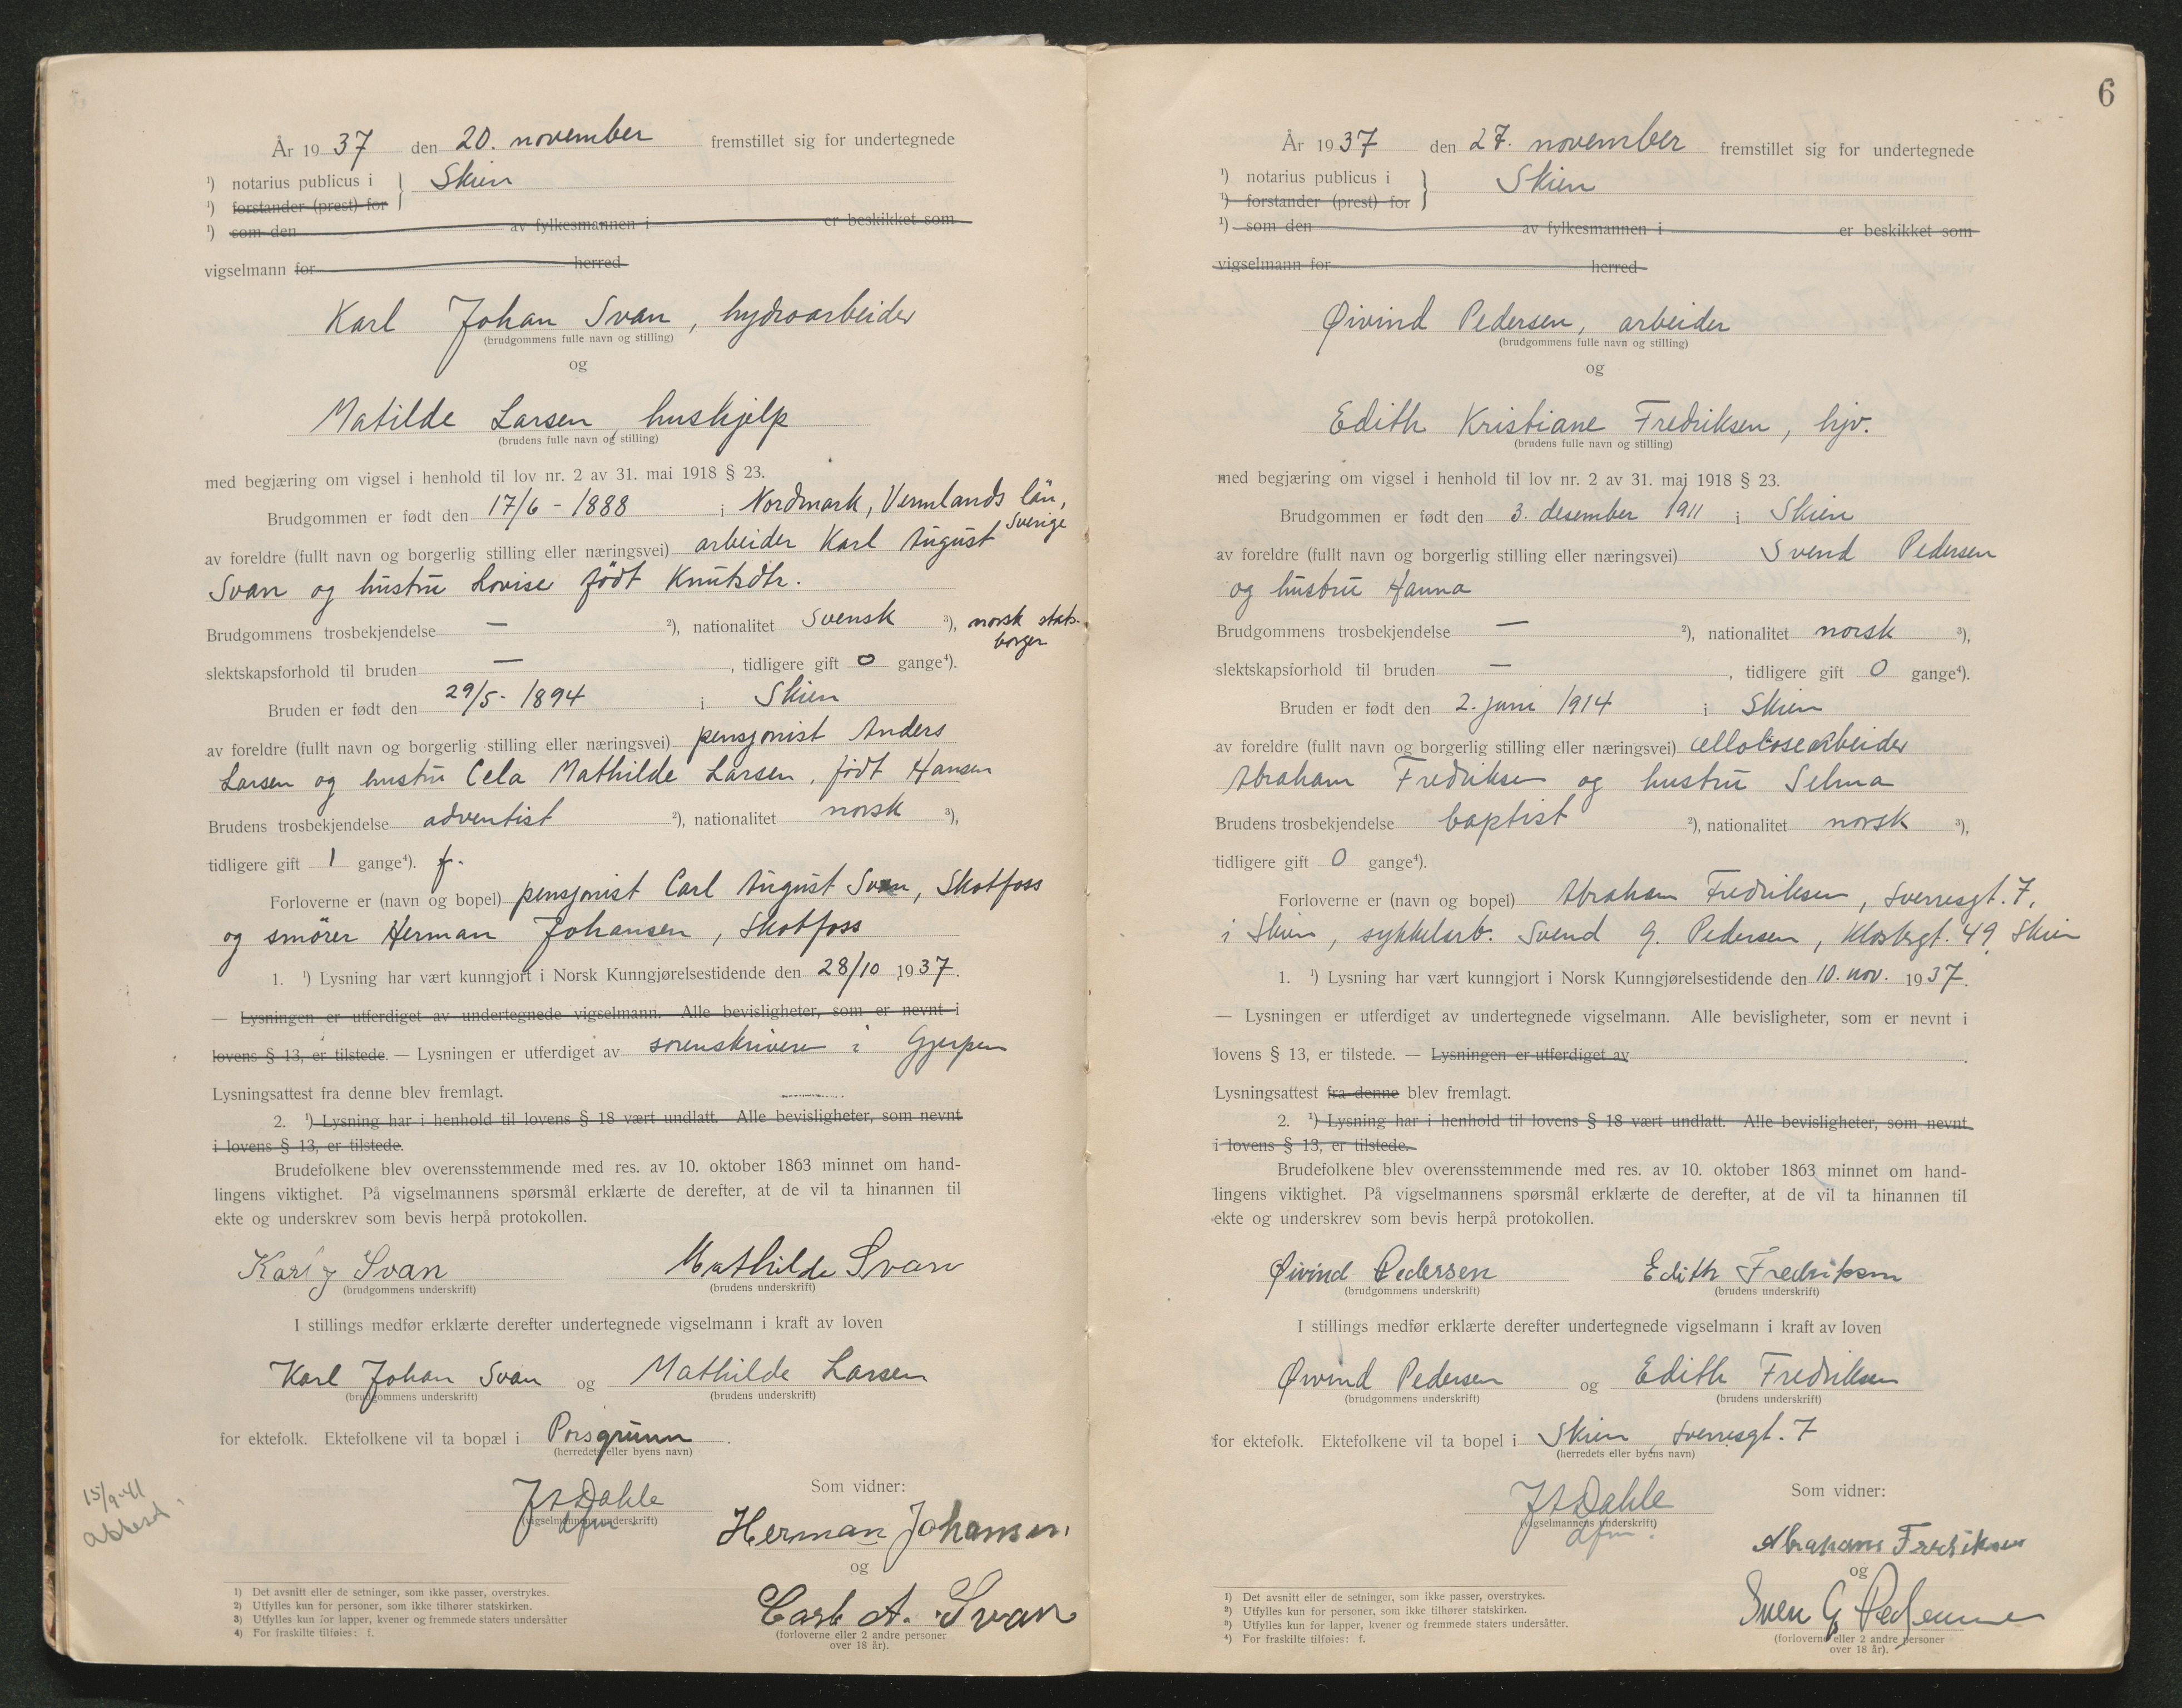 År 1937 den 20. november fremstillet sig for undertegnede
¹) notarius publicus i } Skien
¹) forstander (prest) for
¹) som den av fylkesmannen i er beskikket som
vigselmann for herred
Karl Johan Svan, hydroarbeider
(brudgommens fulle navn og stilling)
og
Matilde Larsen, huskjelp
(brudens fulle navn og stilling)
med begjæring om vigsel i henhold til lov nr. 2 av 31. mai 1918 § 23.
Brudgommen er født den 17/6 - 1888 i Nordmark, Vermlands län,
Sverige
av foreldre (fullt navn og borgerlig stilling eller næringsvei) arbeider Karl August
Svan og hustru Lovise født Knutsdtr.
Brudgommens trosbekjendelse — ²), nationalitet svensk ³), norsk stats-
borger
slektskapsforhold til bruden — , tidligere gift 0 gange⁴).
Bruden er født den 29/5 - 1894 i Skien
av foreldre (fullt navn og borgerlig stilling eller næringsvei) pensjonist Anders
Larsen og hustru Cela Mathilde Larsen, født Hansen
Brudens trosbekjendelse adventist ²), nationalitet norsk ³),
tidligere gift 1 gange⁴). f.
Forloverne er (navn og bopel) pensjonist Carl August Svan, Skotfoss
og smører Herman Johansen, Skotfoss
1. ¹) Lysning har vært kunngjort i Norsk Kunngjørelsestidende den 28/10 1937.
— Lysningen er utferdiget av undertegnede vigselmann. Alle bevisligheter, som er nevnt i
lovens § 13, er tilstede. — Lysningen er utferdiget av sorenskriveren i Gjerpen
Lysningsattest fra denne blev fremlagt.
2. ¹) Lysning har i henhold til lovens § 18 vært undlatt. Alle bevisligheter, som nevnt
i lovens § 13, er tilstede.
Brudefolkene blev overensstemmende med res. av 10. oktober 1863 minnet om hand-
lingens viktighet. På vigselmannens spørsmål erklærte de derefter, at de vil ta hinannen til
ekte og underskrev som bevis herpå protokollen.
Karl J Svan Mathilde Svan
(brudgommens underskrift) (brudens underskrift)
I stillings medfør erklærte derefter undertegnede vigselmann i kraft av loven
Karl Johan Svan og Mathilde Larsen
(brudgommens underskrift) (brudens underskrift)
for ektefolk. Ektefolkene vil ta bopæl i Porsgrunn .
(herredets eller byens navn)
15/9-41
attest
Som vidner:
Dahle
(vigselmannens underskrift)
dfm
Herman Johansen.
og
Carl A. Svan
(forloverne eller 2 andre personer
over 18 år).
1) Det avsnitt eller de setninger, som ikke passer, overstrykes.
2) Utfylles kun for personer, som ikke tilhører statskirken.
3) Utfylles kun for lapper, kvener og fremmede staters undersåtter
4) For fraskilte tilføies: f.
6
År 1937 den 27. november fremstillet sig for undertegnede
¹) notarius publicus i } Skien
¹) forstander (prest) for
¹) som den av fylkesmannen i er beskikket som
vigselmann for herred
Øivind Pedersen, arbeider
(brudgommens fulle navn og stilling)
og
Edith Kristiane Fredriksen, hjv.
(brudens fulle navn og stilling)
med begjæring om vigsel i henhold til lov nr. 2 av 31. mai 1918 § 23.
Brudgommen er født den 3. desember 1911 i Skien
av foreldre (fullt navn og borgerlig stilling eller næringsvei) Svend Pedersen
og hustru Hanna
Brudgommens trosbekjendelse — ²), nationalitet norsk ³),
slektskapsforhold til bruden — , tidligere gift 0 gange⁴).
Bruden er født den 2. juni 1914 i Skien
av foreldre (fullt navn og borgerlig stilling eller næringsvei) cellolosearbeider
Abraham Fredriksen og hustru Selma
Brudens trosbekjendelse baptist ²), nationalitet norsk ³),
tidligere gift 0 gange⁴).
Forloverne er (navn og bopel) Abraham Fredriksen, Sverresgt. 7,
i Skien, sykkelarb. Svend G. Pedersen, Klostergt. 49 Skien
1. ¹) Lysning har vært kunngjort i Norsk Kunngjørelsestidende den 10. nov. 1937.
— Lysningen er utferdiget av undertegnede vigselmann. Alle bevisligheter, som er nevnt i
lovens § 13, er tilstede. — Lysningen er utferdiget av .
Lysningsattest fra denne blev fremlagt.
2. ¹) Lysning har i henhold til lovens § 18 vært undlatt. Alle bevisligheter, som nevnt
i lovens § 13, er tilstede.
Brudefolkene blev overensstemmende med res. av 10. oktober 1863 minnet om hand-
lingens viktighet. På vigselmannens spørsmål erklærte de derefter, at de vil ta hinannen til
ekte og underskrev som bevis herpå protokollen.
Øivind Pedersen Edith Fredriksen
(brudgommens underskrift) (brudens underskrift)
I stillings medfør erklærte derefter undertegnede vigselmann i kraft av loven
Øivind Pedersen og Edith Fredriksen
(brudgommens underskrift) (brudens underskrift)
for ektefolk. Ektefolkene vil ta bopel i Skien, Sverresgt. 7
(herredets eller byens navn)
Som vidner:
Dahle
(vigselmannens underskrift)
dfm.
Abraham Fredriksen
og
Sven G Pedersen
(forloverne eller 2 andre personer
over 18 år).
1) Det avsnitt eller de setninger, som ikke passer, overstrykes.
2) Utfylles kun for personer, som ikke tilhører statskirken.
3) Utfylles kun for lapper, kvener og fremmede staters undersåtter.
4) For fraskilte tilføies: f.